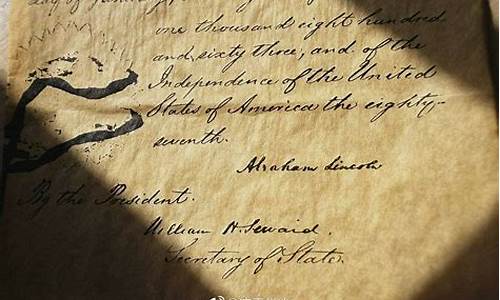 day of
one thousand eight hundred
and sixty three, and of the
Independence of the United
States of America the eighty-
seventh.
Abraham Lincoln
By the President.
William H. Seward.
Secretary of State.